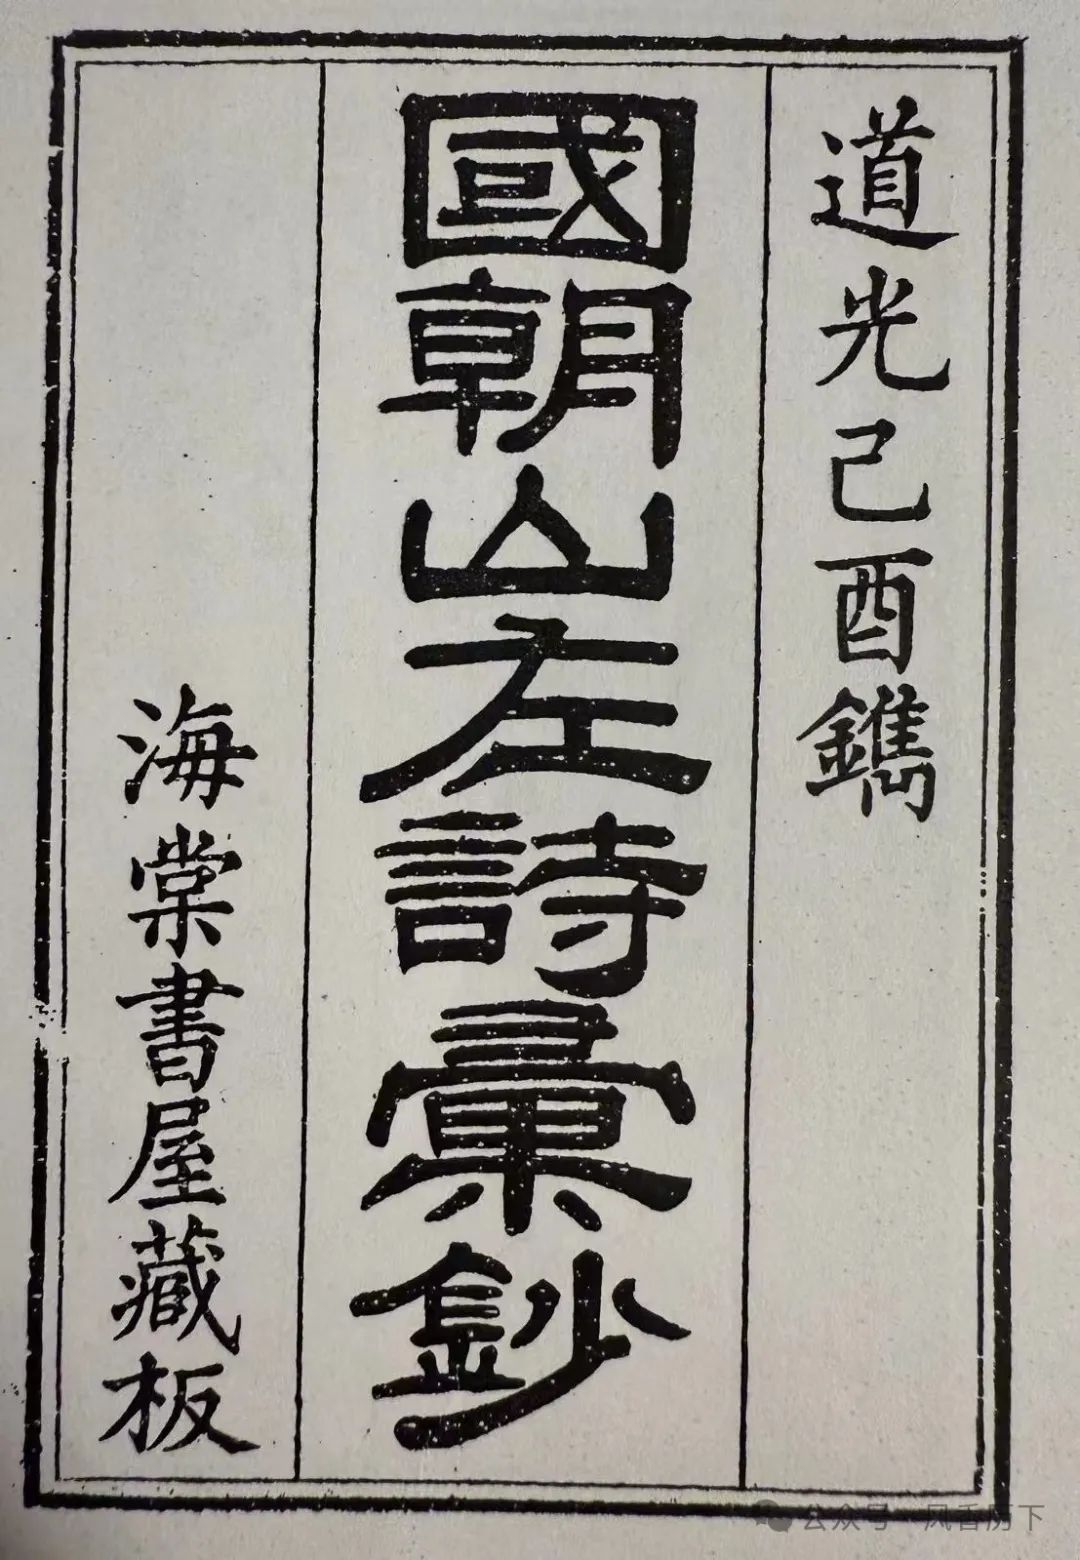 道光己酉鐫
國朝山左詩彙鈔
海棠書屋藏板
公众号·风香历下